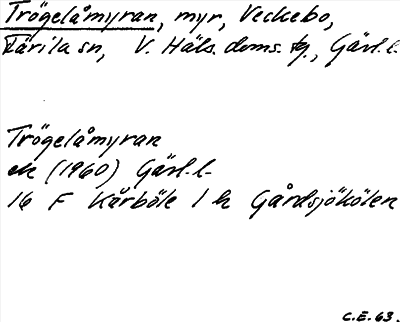 Trögelåmyran, myr, Veckebo,
Färila sn, V. Häls. doms. tg., Gävl. l.
Trögelåmyran
ek (1960) Gävl. l.
16 F Kårböle 1 h Gårdsjökölen
C.E. 63.